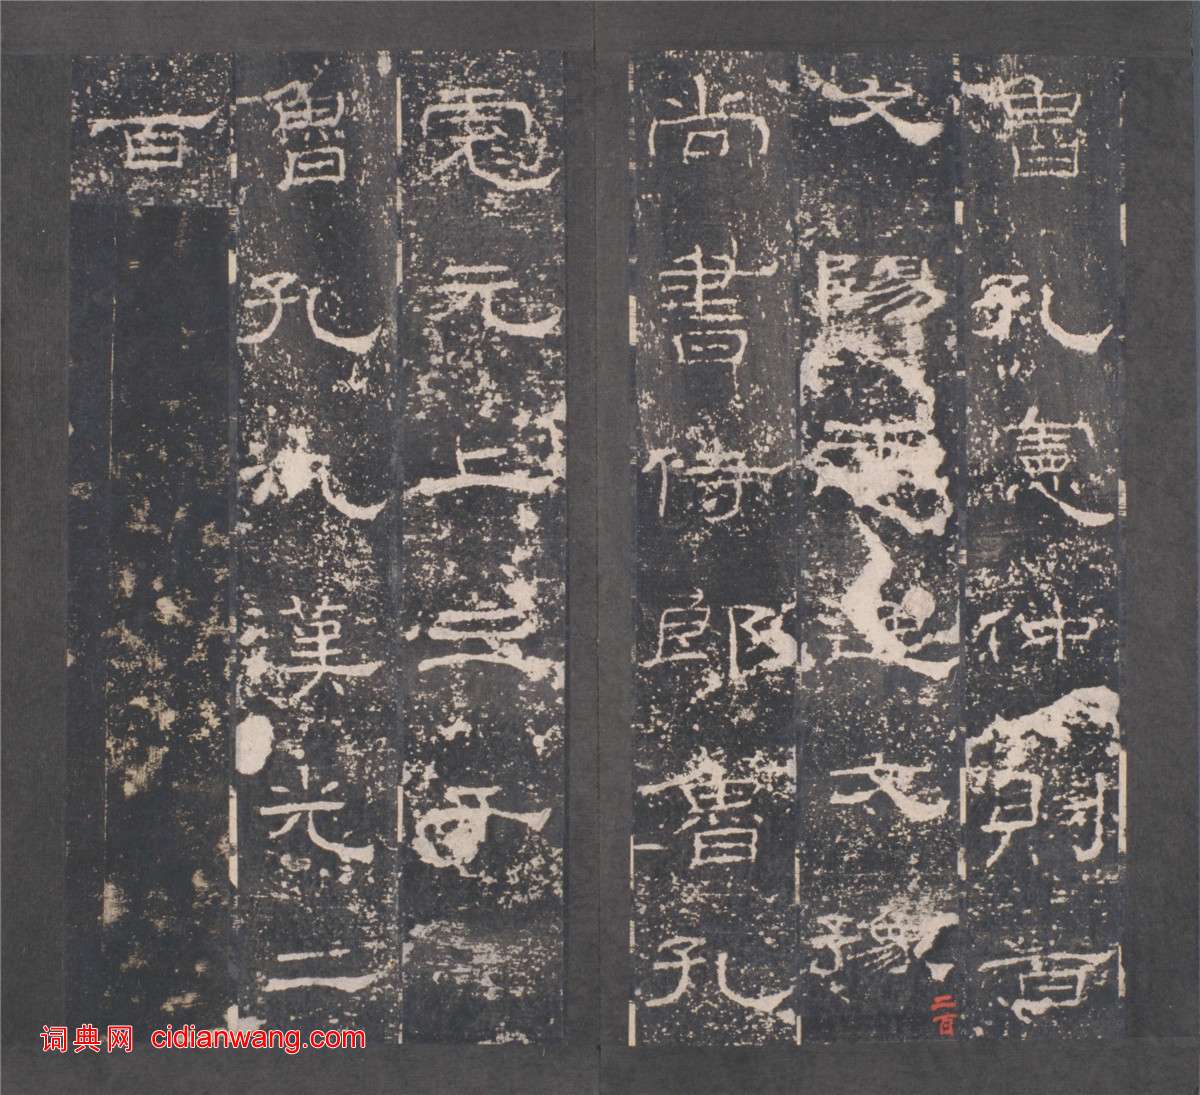 魯孔憲仲則百
文陽王逸文豫
二百
尚書侍郎魯孔
彪元上三千
魯孔汎漢光二
百
词典网 cidianwang.com